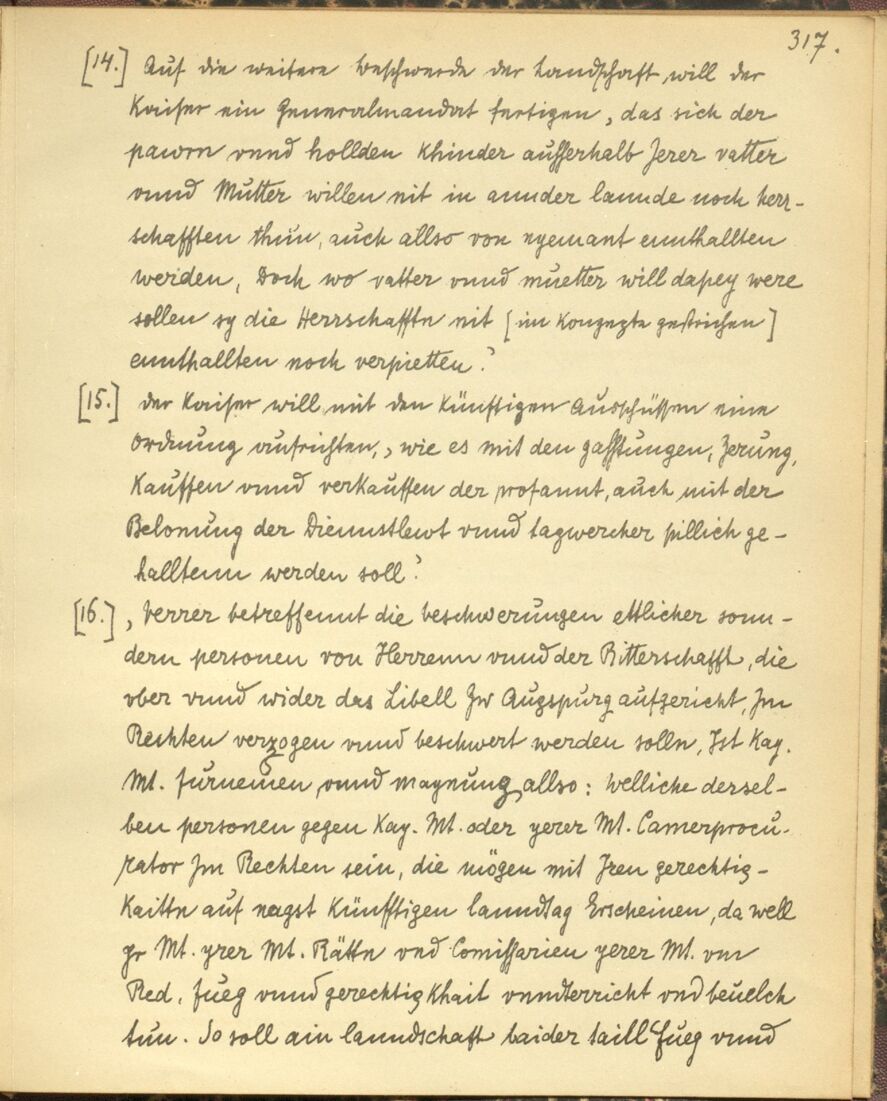 317.
[14.] Auf die weitere Beschwerde der Landschaft will der
Kaiser ein Generalmandat fertigen, „das sich der
pawrn vnnd hollden khinder ausserhalb Jerer vatter
vnnd Mutter willen nit in annder lannde noch herr-
schafften thun, auch allso von nyemant ennthallten
werden, Doch wo vatter vnnd muetter will dapey were
sollen sy die Herrschafftn nit [im Konzepte gestrichen]
ennthallten noch verpietten."
[15.] der Kaiser will mit den künftigen Ausschüssen eine
Ordnung aufrichten, „wie es mit den gasstungen, Zerung,
Kauffen vnnd verkauffen der profannt, auch mit der
Belonung der Diennstlewt vnnd tagwercher pillich ge-
halltenn werden soll"
[16.] „Verrer betreffennt die beschwerungen ettlicher sonn-
dern personen von Herrenn vnnd der Ritterschafft, die
vber vnnd wider das Libell Zw Augspurg aufgericht, Jm
Rechten verzogen vnnd beschwert werden solln, Ist Kay.
Mt. furnemen vnnd maynung allso: Welliche dersel-
ben personen gegen Kay. Mt. oder yerer Mt. Camerprocu-
rator Jm Rechten sein, die mögen mit Jren gerechtig-
kaittn auf nagst künfftigen lanndtag Erscheinen, da well
yr Mt. yrer Mt. Rättn vnd Comissarien yerer Mt.
Red, fueg vnnd gerechtigkhait vnndterricht vnd beuelch
tun. So soll ain lanndschafft baider taill fueg vnnd